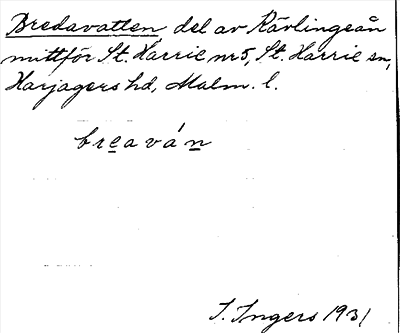 Bredavatten del av Kävlingeån
mittför St. Harrie nr 5, St. Harrie sn,
Harjagers hd, Malm. l.
breaván
I. Ingers 1931